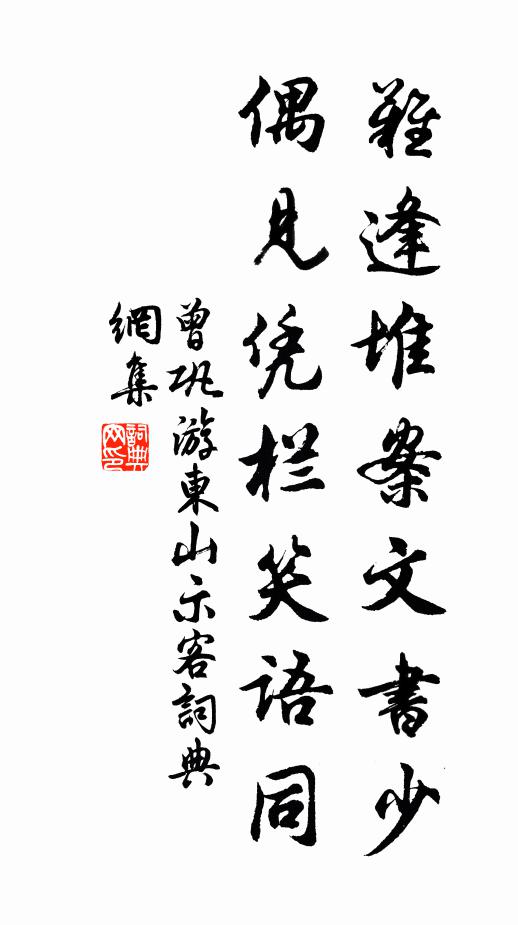 難逢堆案文書少
偶見凭栏笑語同
曾巩游東山示客詞典
網集
詞典
网印